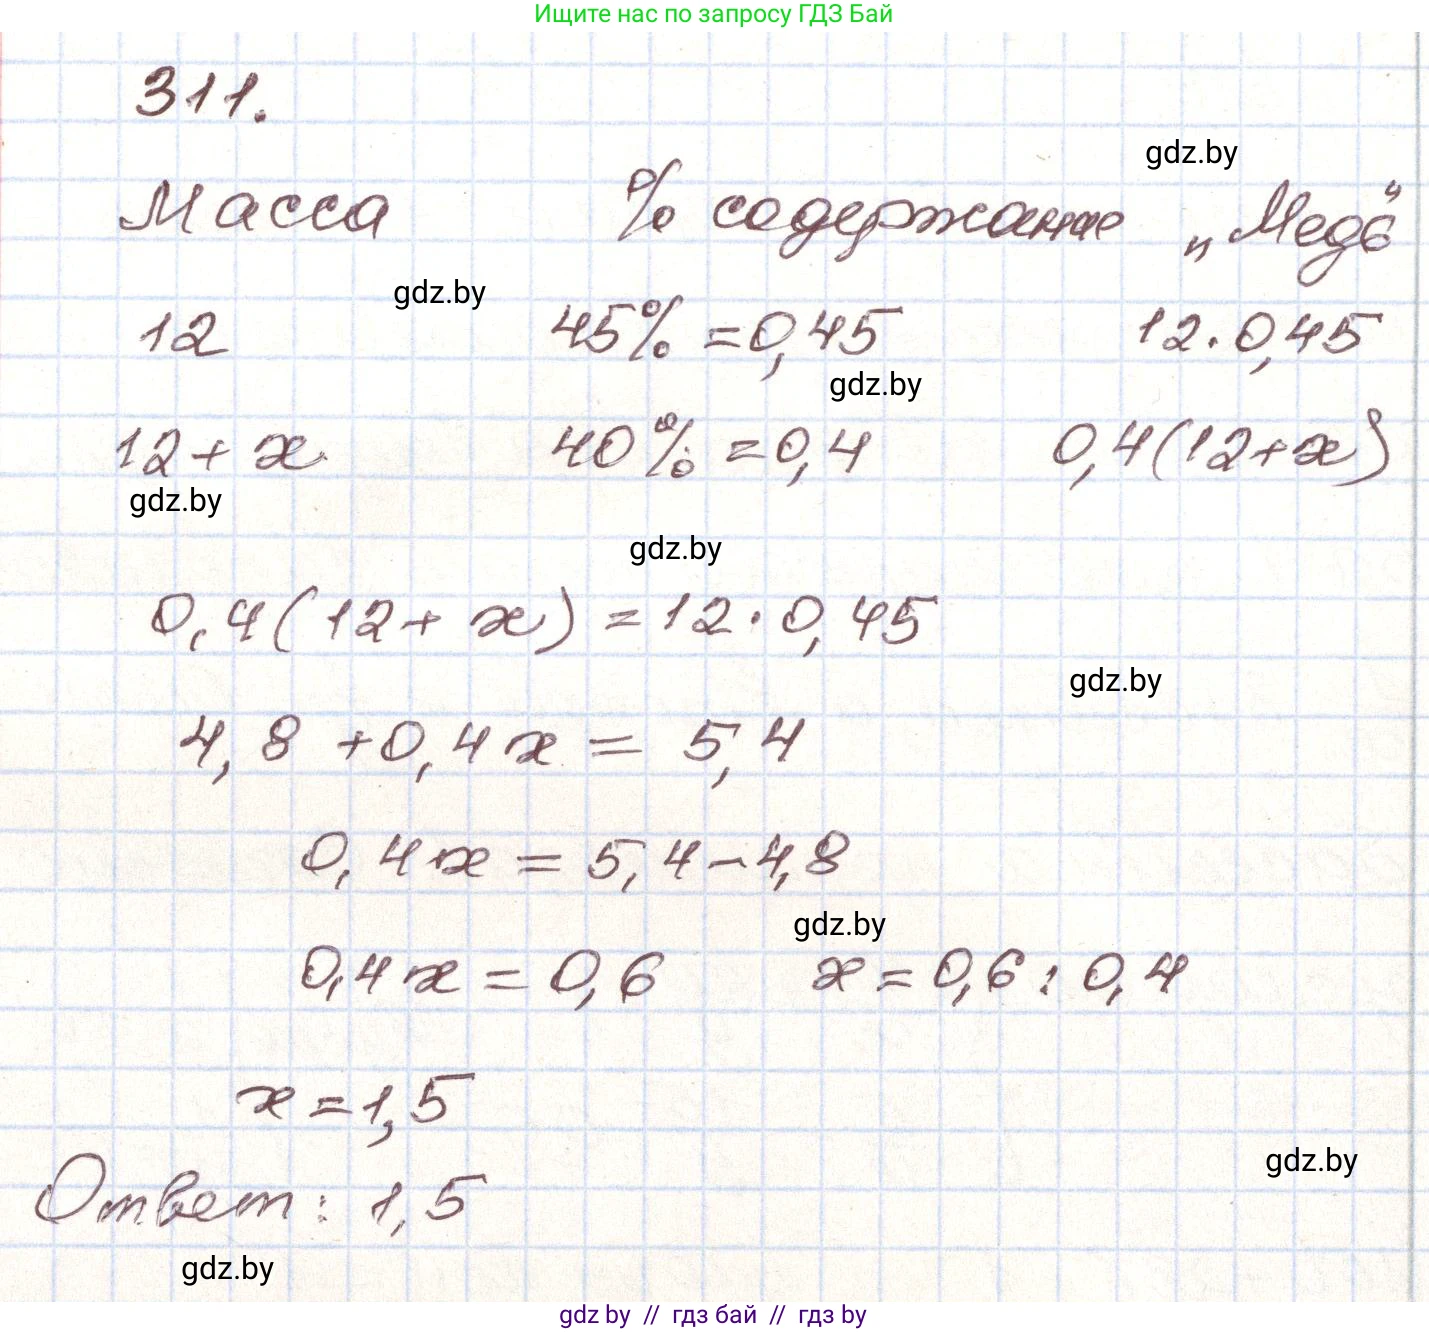 Ищите нас по запросу ГДЗ Бай
311.
gdz.by
Масса % содержание „Медь“
gdz.by
12 45% = 0,45 12 · 0,45
gdz.by
12 + x 40% = 0,4 0,4(12+x)
gdz.by
gdz.by
0,4(12 + x) = 12 · 0,45
gdz.by
4,8 + 0,4x = 5,4
0,4x = 5,4 - 4,8
gdz.by
0,4x = 0,6 x = 0,6 : 0,4
x = 1,5
gdz.by
Ответ: 1,5
gdz.by
gdz by // гдз бай // гдз by